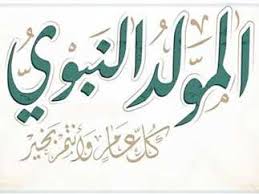 المولد النبوي
كل عام وأنتم بخير